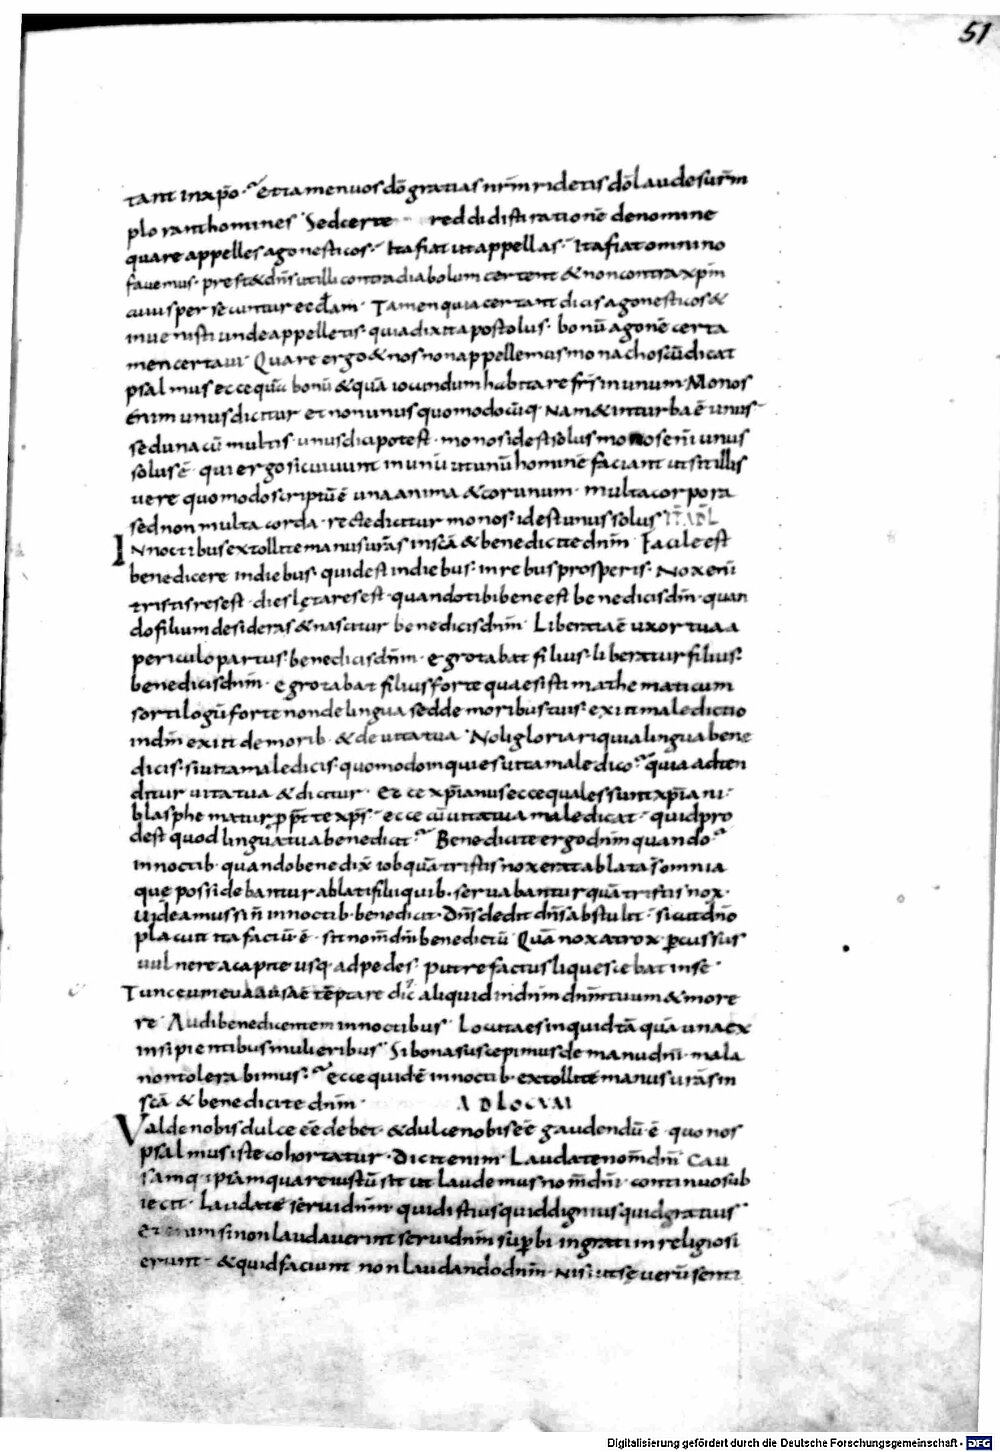 51
tant inxpo· & tamen uos dō gratias nrm ridetis dō laudes urm
plorant homines· Sed certe reddidisti rationē denomine
quare appelles agonesticos· Ita fiat ut appellas· Ita fiat omnino
fauemus· prest& dns ut illi contra diabolum certent & non contra xpm
cuius persecuntur eccłam· Tamen quia certant dicis agonesticos &
inuenisti unde appelletis· quia dixit apostolus· bonū agonē certa
men certaui· Quare ergo & nos non appellemus monachos cū dicat
psalmus ecce quā bonū & quā iocundum habitare frs in unum· Monos
enim unus dicitur et non unus quomodocūq· Nam & in turba ē unus
sed una cū multis· unus dici potest· monos id est solus monos enī unus
solus ē· qui ergo sic uiuunt in unū ut unū hominē faciant ut sit illis
uere quomodo scriptū ē una anima & cor unum· multa corpora
sed non multa corda· recte dicitur monos· id est unus solus
In noctibus extollite manus uras in scā & benedicite dnm Facile est
benedicere in diebus· quid est in diebus· in rebus prosperis· Nox enī
tristis res est· dies lęta res est· quando tibi bene est benedicis dnm· quan
do filium desideras & nascitur benedicis dnm· Liberata ē uxor tua a
periculo partus· benedicis dnm· egrotabat filius· liberatur filius·
benedicis dnm· egrotabat filius forte quaesisti mathematicum
sortilogū forte non de lingua sed de moribus tuis· exiit maledictio
in dnm exiit de morib· & de uita tua· Noli gloriari quia lingua bene
dicis· si uita maledicis· quomodo inquies uita maledico· quia adten
ditur uita tua & dicitur· Ecce xpianus ecce quales sunt xpiani·
blasphematur ppt te xps· ecce cū uita tua maledicat· quid pro
dest quod lingua tua benedicit· Benedicite ergo dnm quando
in noctib· quando benedix iob quā tristis nox erat ablata s omnia
que possidebantur ablati filii quib· seruabantur quā tristis nox·
uideamus si n in noctib· benedicit· Dns dedit dns abstulit· sicut dno
placuit ita factū ē· sit nom dni benedictū Quā nox atrox pcussus
uulnere a capite usq· ad pedes· putrefactus liquescebat in se·
Tunc eum eua ausa ē tēptare dic aliquid in dnm dnm tuum & more
re· Audi benedicentem in noctibus· Locuta es inquid tā quā una ex
insipientibus mulieribus· Si bona suscepimus de manu dni· mala
non tolerabimus· ecce quidē in noctib· extollite manus uras in
scā & benedicite dnm· AD LOCUM
Valde nobis dulce eē debet· & dulce nobis eē gaudendū ē quo nos
psalmus iste cohortatur· Dicit enim· Laudate nom dni Cau
samq· ipsam quare iustū sit ut laudemus nom dni· continuo sub
iecit· Laudate serui dnm· quid istius quid dignius quid gratius
Etenim si non laudauerint serui dnm supbi ingrati inreligiosi
erunt· & quid faciunt non laudando dnm· nisi ut se uerū senti
Digitalisierung gefördert durch die Deutsche Forschungsgemeinschaft - DFG